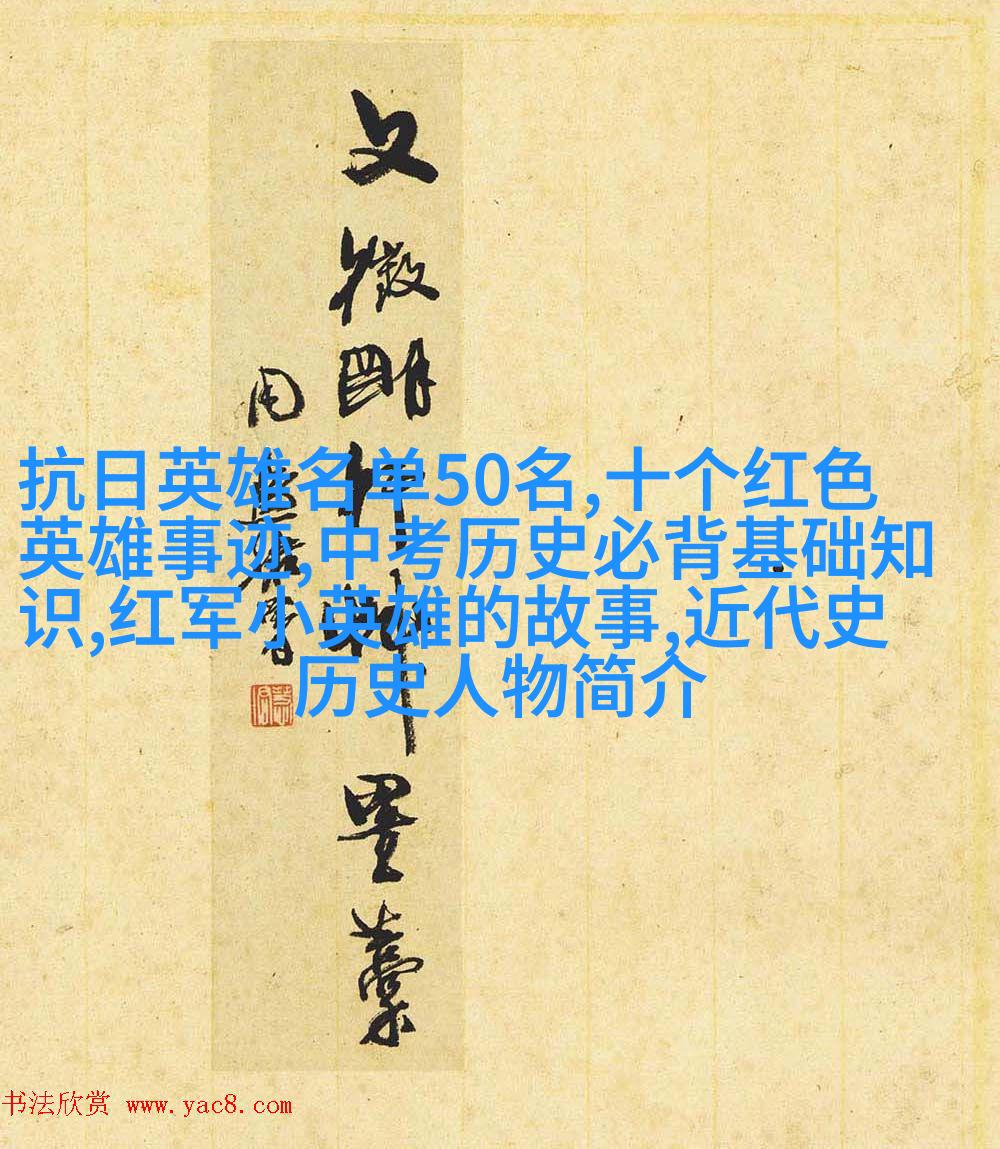 文徵明行
墨藁
抗日英雄名单50名,十个红色
英雄事迹,中考历史必背基础知
识,红军小英雄的故事,近代史
历史人物简介
书法欣赏 www.yac8.com